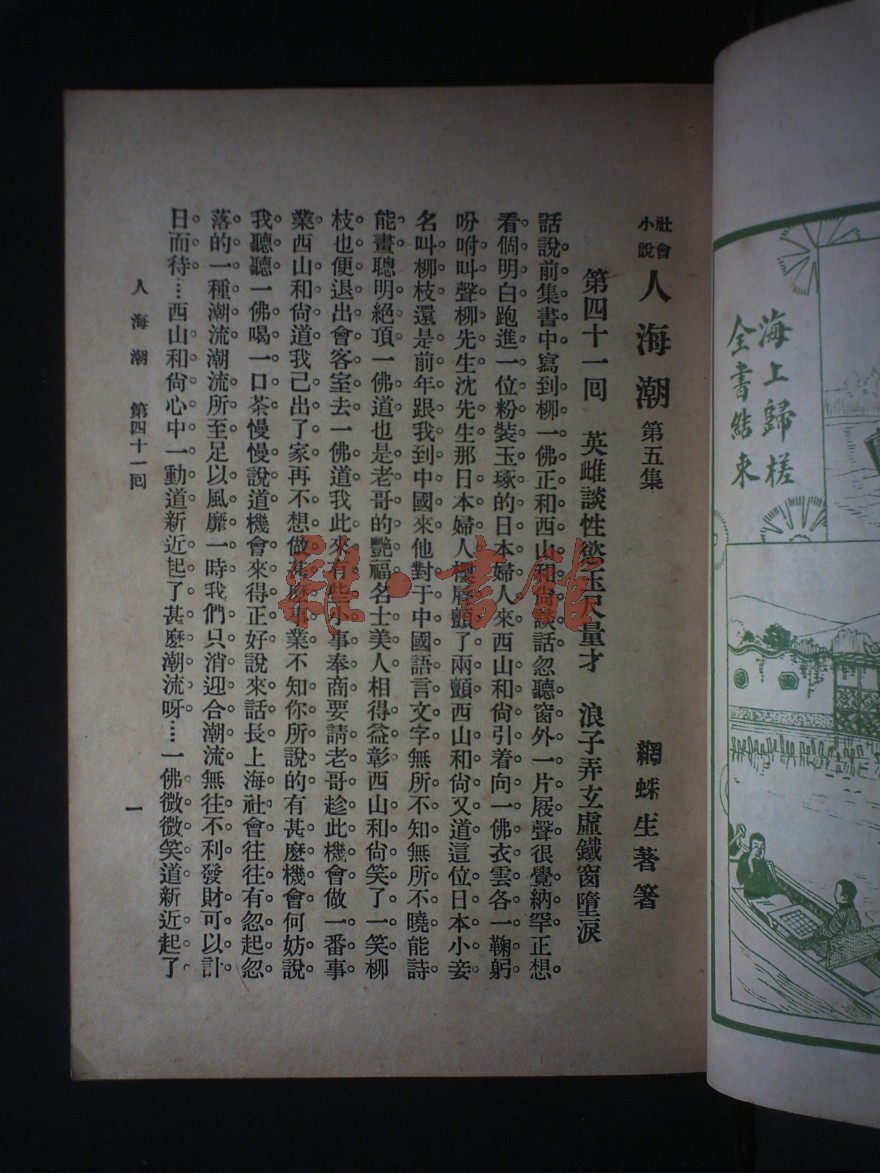 海上歸槎
全書結束
社會
小說
人海潮 第五集 網蛛生著箸
第四十一回 英雌談性慾玉尺量才 浪子弄玄虛鐵窗墮淚
話說前集書中寫到柳一佛正和西山和尙談話。忽聽窗外一片屐聲。很覺納罕。正想
看個明白。跑進一位粉裝玉琢的日本婦人來。西山和尙引着向一佛衣雲各一鞠躬。
吩咐叫聲柳先生沈先生。那日本婦人櫻唇顫了兩顫。西山和尙又道。這位日本小妾
名叫柳枝。還是前年跟我到中國來。他對于中國語言文字。無所不知。無所不曉。能詩
能畫。聰明絕頂。一佛道。也是老哥的艷福。名士美人。相得益彰。西山和尙笑了一笑。柳
枝也便退出會客室去。一佛道。我此來有些小事奉商。要請老哥趁此機會。做一番事
業。西山和尙道。我已出了家。再不想做甚麼事業。不知你所說的有甚麼機會。何妨說
我聽聽。一佛喝一口茶。慢慢說道。機會來得正好。說來話長。上海社會。往往有忽起忽
落的一種潮流。潮流所至。足以風靡一時。我們只消迎合潮流。無往不利。發財可以計
日而待……西山和尙心中一動道。新近起了甚麼潮流呀……一佛微微笑道。新近起了
人海潮 第四十一回 一
雜·書館